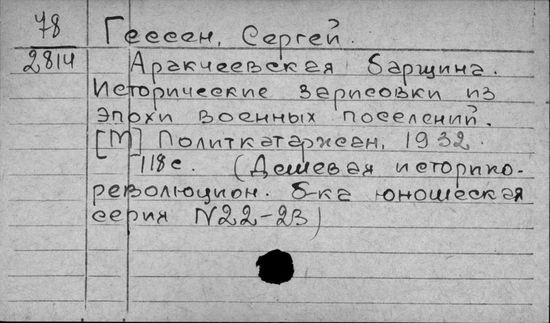 78 Гессен, Сергей.
2814 Аракчеевская барщина.
Исторические зарисовки из
эпохи военных поселений.
[М] Политкаторжан, 1932.
118 с. (Дешевая историко-
революцион. б-ка юношеская
серия N22-23)